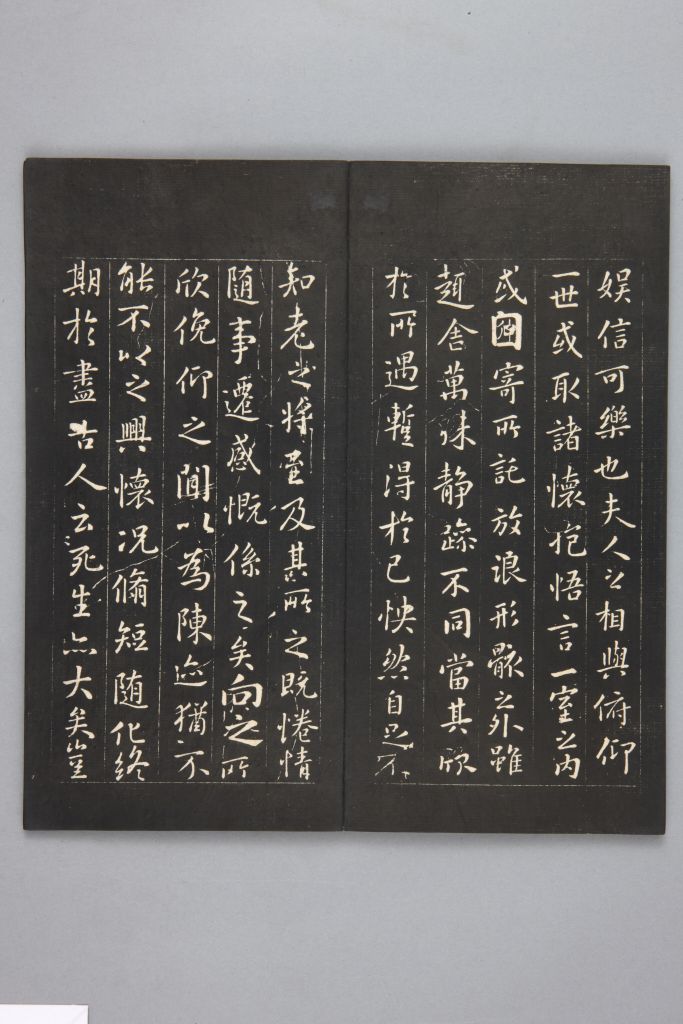 娯信可樂也夫人之相與俯仰
一世或取諸懷抱悟言一室之内
或因寄所託放浪形骸之外雖
趣舍萬殊静躁不同當其欣
於所遇蹔得於己怏然自足不
知老之將至及其所之既惓情
随事遷感慨係之矣向之所
欣俛仰之閒以為陳迹猶不
能不以之興懷況脩短随化終
期於盡古人云死生亦大矣豈